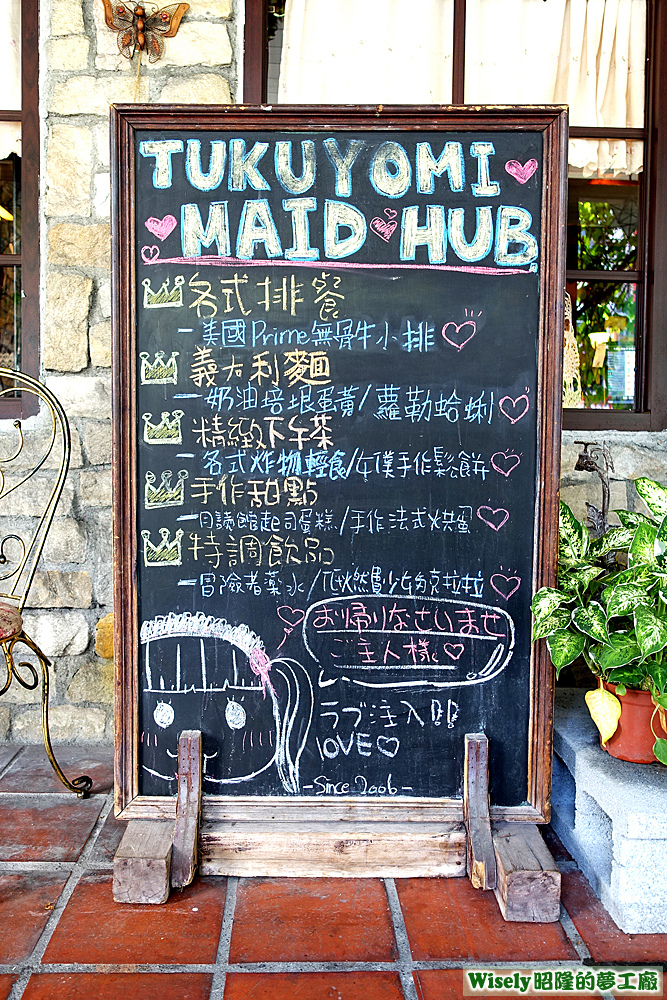 TUKUYOMI
MAID HUB
各式排餐
－美國Prime無骨牛小排
義大利麵
－奶油培根蛋黃/蘿勒蛤蜊
精緻下午茶
－各式炸物輕食/女僕手作鬆餅
手作甜點
－月讀館起司蛋糕/手作法式烘蛋
特調飲品
－冒險者藥水/低燃費少女克拉拉
お帰りなさいませ
ご主人様。
ラブ注入!!
lOVE
-Since 2006-
Wisely昭隆的夢工廠